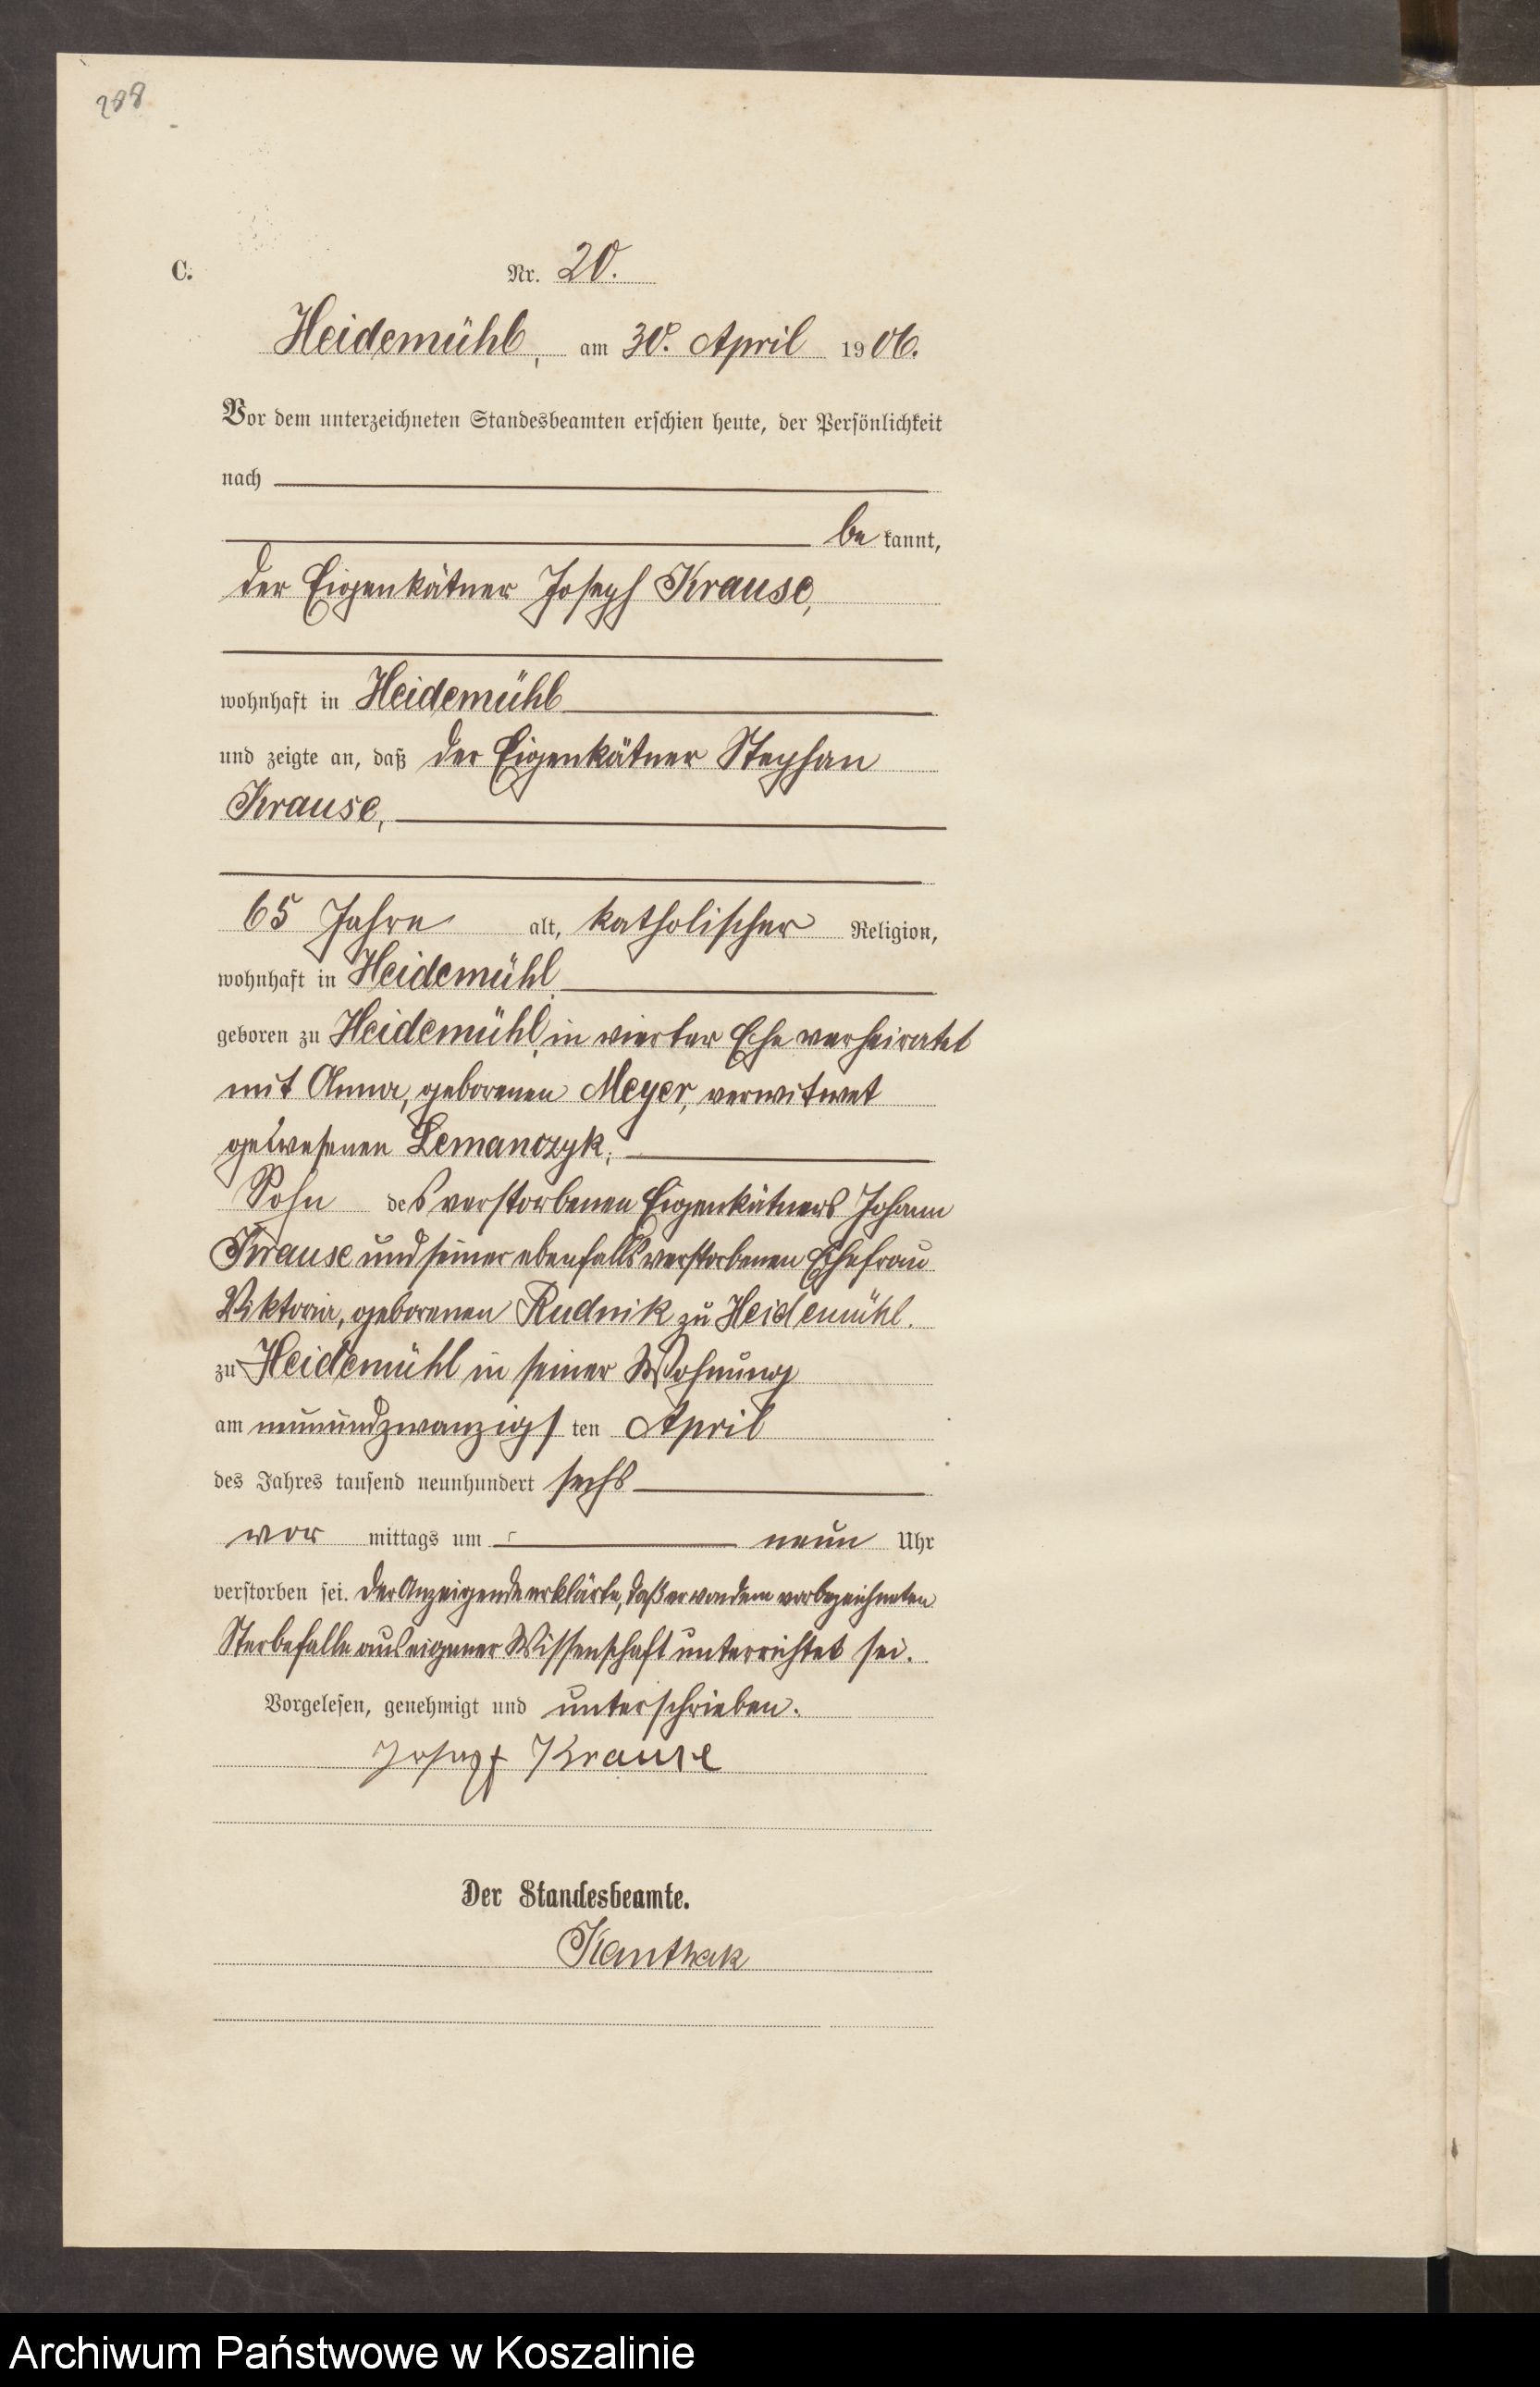 288
C.
Nr. 20.
Heidemühl, am 30. April 1906.
Vor dem unterzeichneten Standesbeamten erschien heute, der Persönlichkeit
nach
be kannt,
der Eigenkätner Joseph Krause,
wohnhaft in Heidemühl
und zeigte an, daß der Eigenkätner Stephan
Krause,
65 Jahre alt, katholischer Religion,
wohnhaft in Heidemühl,
geboren zu Heidemühl, in vierter Ehe verheiratet
mit Anna, geborenen Meyer, verwitwet
gewesenen Lemanczyk,
Sohn des verstorbenen Eigenkätners Johann
Krause und seiner ebenfalls verstorbenen Ehefrau
Viktoria, geborenen Rudnik zu Heidemühl.
zu Heidemühl in seiner Wohnung
am neunundzwanzigs ten April
des Jahres tausend neunhundert sechs
vor mittags um neun Uhr
verstorben sei. Der Anzeigende erklärte, daß er von dem vorbezeichneten
Sterbefalle aus eigener Wissenschaft unterrichtet sei.
Vorgelesen, genehmigt und unterschrieben.
Joseph Krause
Der Standesbeamte.
Kanthak
Archiwum Państwowe w Koszalinie